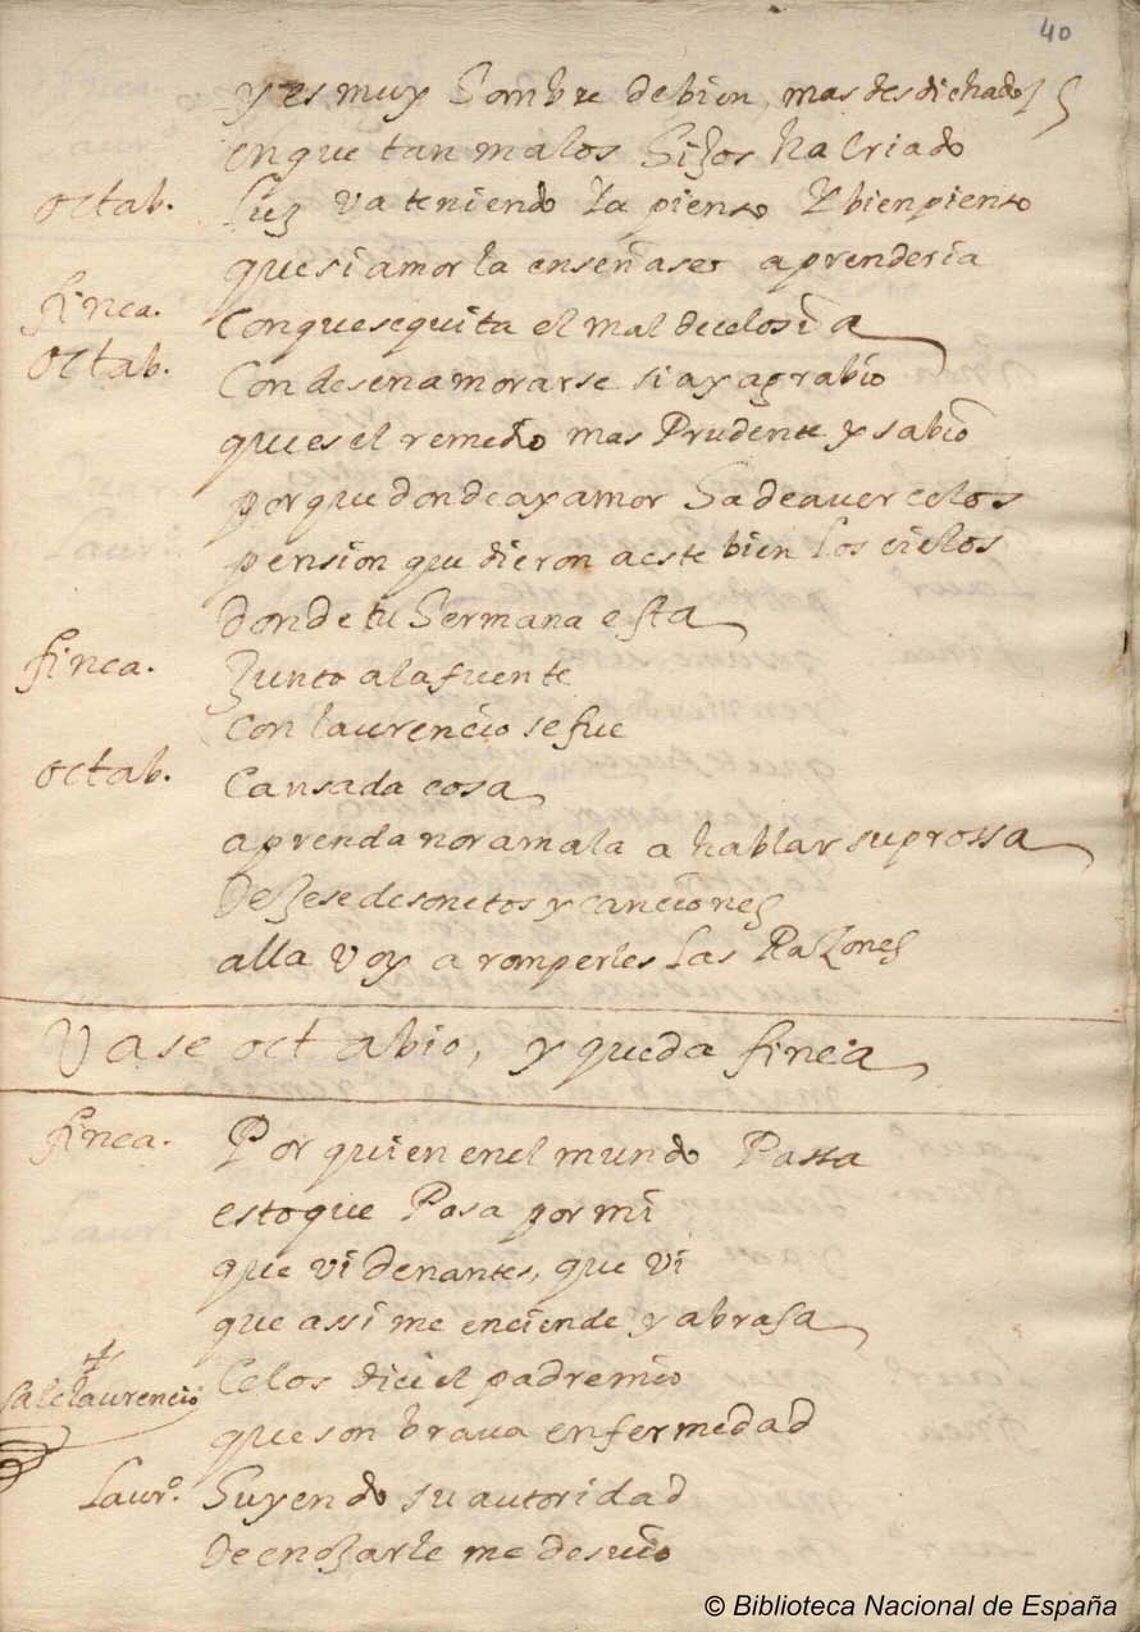 40
y es muy hombre de bien, mas desdichado
en que tan malos hijos ha criado
octab. luz va teniendo ya pienso y bien pienso
que si amor la enseñases aprenderia
finea. Con que se quita el mal de celosia
octab. Con desenamorarse si ay agrabio
que es el remedio mas Prudente y sabio
porque donde ay amor ha de auer celos
pension que dieron a este bien los cielos
donde tu hermana esta
finea. Junto a la fuente
con laurencio se fue
octab. Cansada cosa
aprenda noramala a hablar su prossa
Dejese de sonetos y canciones
alla voy a romperles las Razones
Vase octabio, y queda finea
finea. Por quien en el mundo Passa
esto que Pasa por mi
que vi denantes, que vi
que assi me enciende y abrasa
Celos dice el padre mio
sale laurencio
que son braua enfermedad
Laur.º huyendo su autoridad
de enojarle me desuio
© Biblioteca Nacional de España